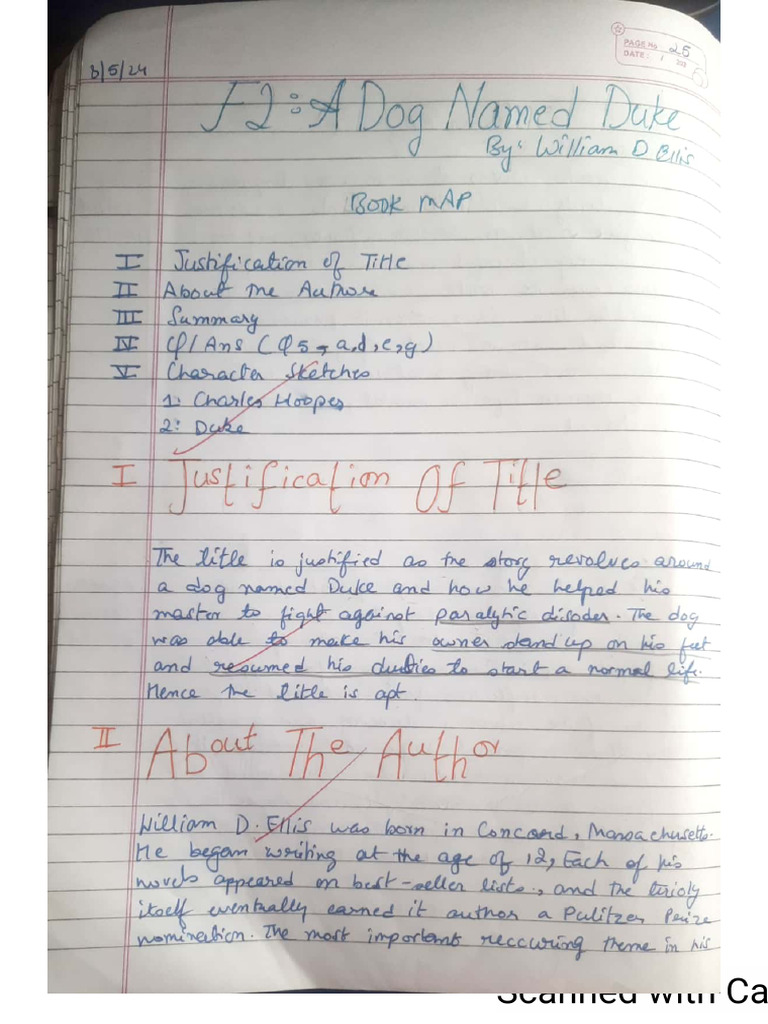 PAGE No 25
DATE:
8/5/24
F2: A Dog Named Duke
By: William D Ellis
BOOK MAP
I Justification of Title
II About the Authore
III Summary
IV Q/Ans (Q5, a,d,e,g)
V Character Sketches
1: Charles Hooper
2: Duke
I Justification Of Title
The title is justified as the story revolves around
a dog named Duke and how he helped his
master to fight against paralytic disoder. The dog
was able to make his owner stand up on his feet
and resumed his duties to start a normal life.
Hence the title is apt.
II About The Author
William D. Ellis was born in Concord, Massachusetts.
He began writing at the age of 12, Each of his
novels appeared on best-seller lists., and the
itself eventually earned it author a Pulitzer Prize
nomination. The most important reccuring theme in his
Scanned with Ca